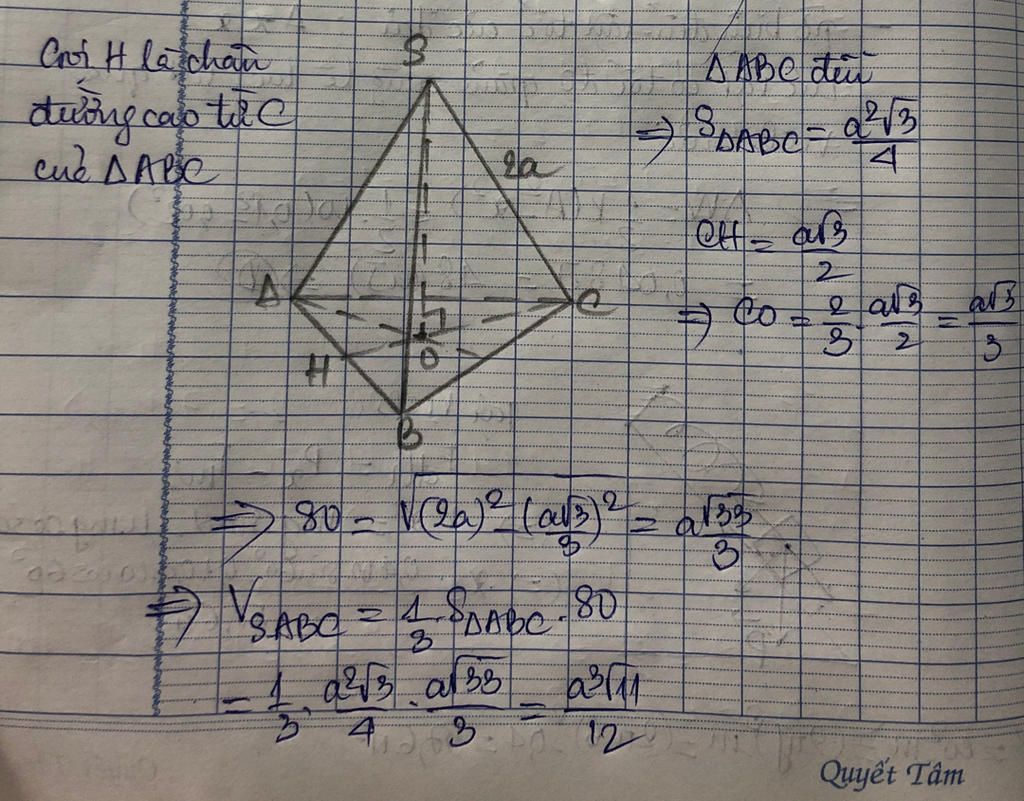 Gọi H là chân
đường cao từ C
của ΔABC
S
2a
A
C
H
O
B
ΔABC đều
=> S_ΔABC = a²√3/4
CH = a√3/2
=> CO = 2/3 . a√3/2 = a√3/3
=> SO = √((2a)² - (a√3/3)²) = a√33/3
=> V_SABC = 1/3 . S_ΔABC . SO
= 1/3 . a²√3/4 . a√33/3 = a³√11/12
Quyết Tâm